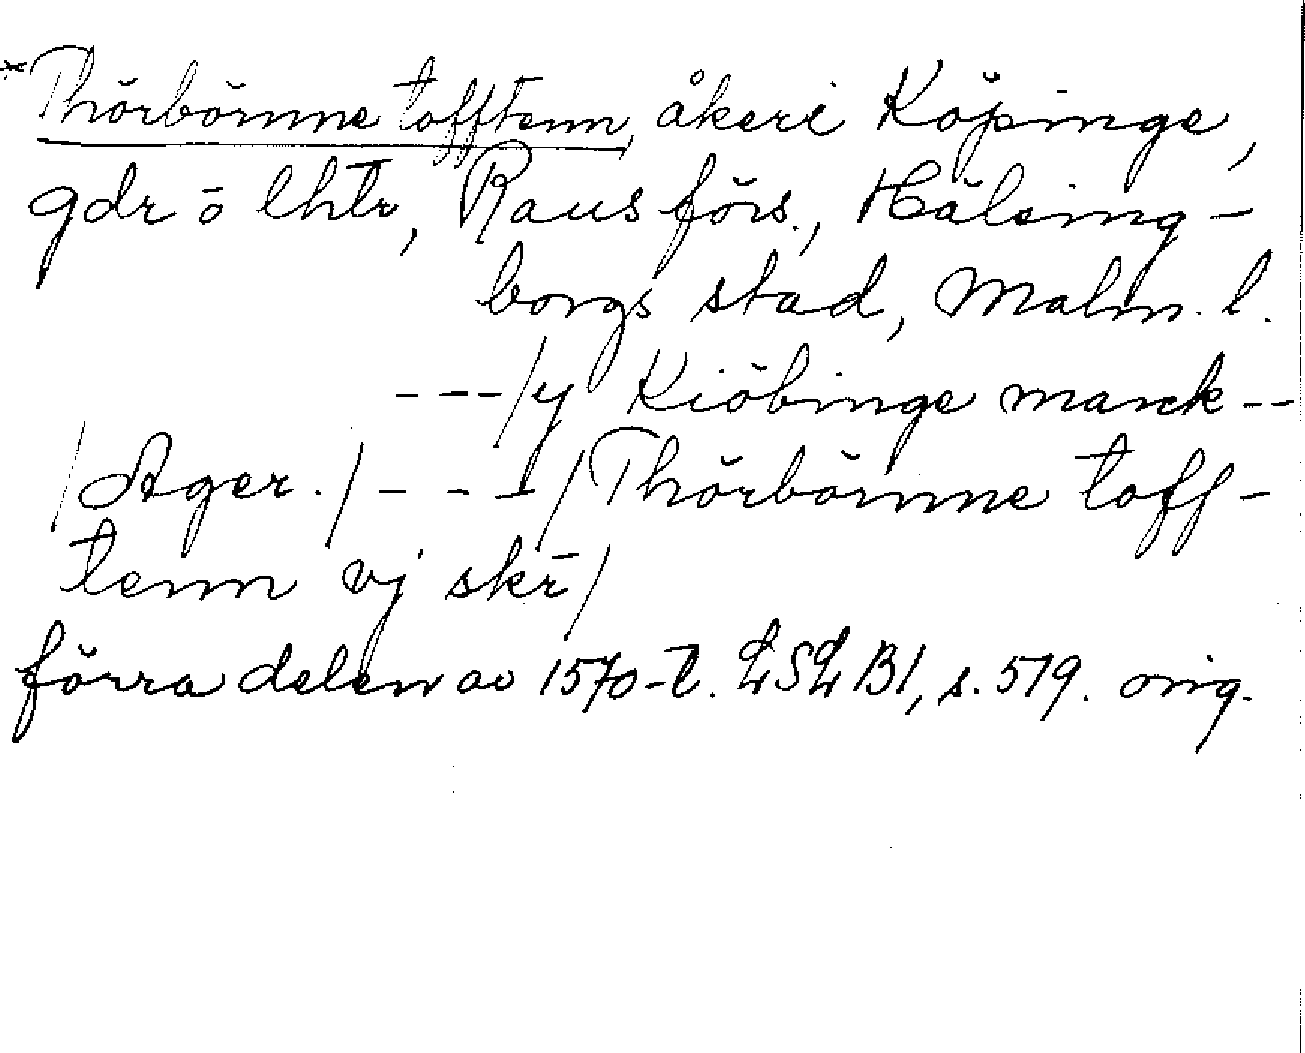 *Thörbörnne tofftenn, åker i Köpinge,
gdr o lhtr, Raus förs., Hälsing-
borgs stad, Malm. l.
---/y Kiöbinge marck--
/Ager./---/Thörbörnne toff-
tenn vj skr/
förra delen av 1570-t. LSL B1, s. 519. orig.